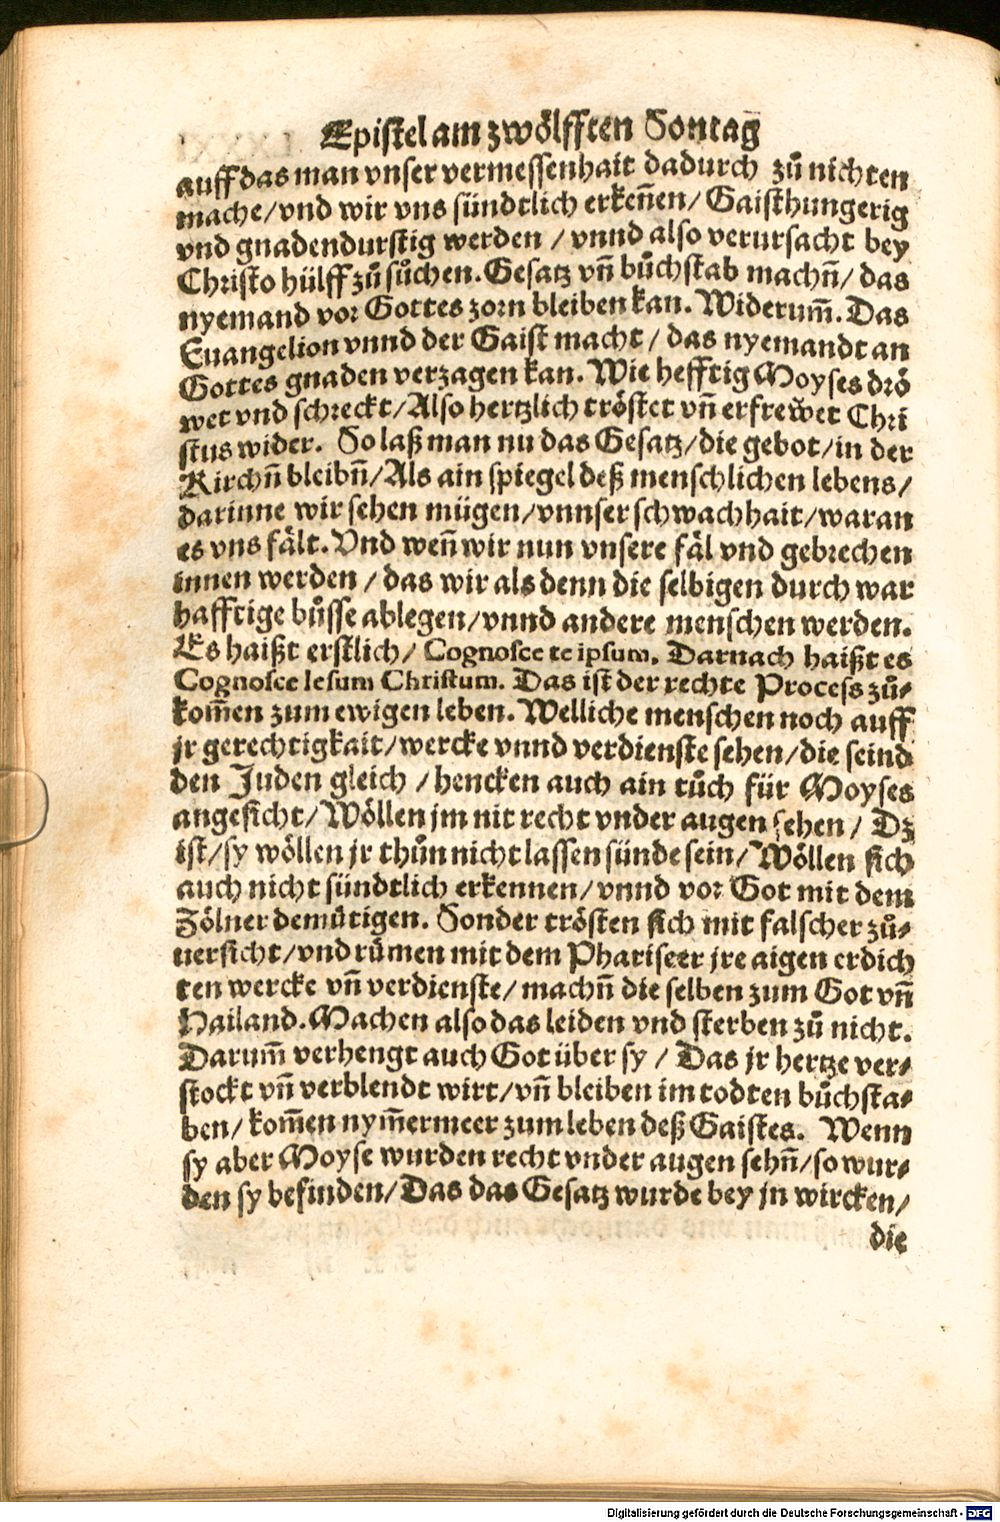 Epistel am zwölfften Sontag
auff das man vnser vermessenhait dadurch zů nichten
mache/vnd wir vns sündtlich erkeñen/ Gaisthungerig
vnd gnadendurstig werden / vnnd also verursacht bey
Christo hülff zů sůchen. Gesatz vñ bůchstab machñ/ das
nyemand vor Gottes zorn bleiben kan. Widerum̃. Das
Euangelion vnnd der Gaist macht / das nyemandt an
Gottes gnaden verzagen kan. Wie hefftig Moyses drö
wet vnd schreckt/Also hertzlich tröstet vñ erfrewet Chri
stus wider. So laß man nu das Gesatz/die gebot/in der
Kirchñ bleibñ/Als ain spiegel deß menschlichen lebens/
darinne wir sehen mügen/vnnser schwachhait/waran
es vns fält. Vnd weñ wir nun vnsere fäl vnd gebrechen
innen werden / das wir als denn die selbigen durch war
hafftige bůsse ablegen/vnnd andere menschen werden.
Es haißt erstlich/ Cognosce te ipsum. Darnach haißt es
Cognosce Iesum Christum. Das ist der rechte Process zů-
kom̃en zum ewigen leben. Welliche menschen noch auff
jr gerechtigkait/wercke vnnd verdienste sehen/die seind
den Juden gleich / hencken auch ain tůch für Moyses
angesicht/ Wöllen jm nit recht vnder augen sehen/ Dz
ist/sy wöllen jr thůn nicht lassen sünde sein/ Wöllen sich
auch nicht sündtlich erkennen/vnnd vor Got mit dem
Zölner demůtigen. Sonder trösten sich mit falscher zů-
uersicht/vnd růmen mit dem Phariseer jre aigen erdich
ten wercke vñ verdienste/ machñ die selben zum Got vñ
Hailand. Machen also das leiden vnd sterben zů nicht.
Darum̃ verhengt auch Got über sy / Das jr hertze ver-
stockt vñ verblendt wirt/vñ bleiben im todten bůchsta-
ben/ kom̃en nym̃ermeer zum leben deß Gaistes. Wenn
sy aber Moyse wurden recht vnder augen sehñ/so wur-
den sy befinden/Das das Gesatz wurde bey jn wircken/
die
Digitalisierung gefördert durch die Deutsche Forschungsgemeinschaft - DFG